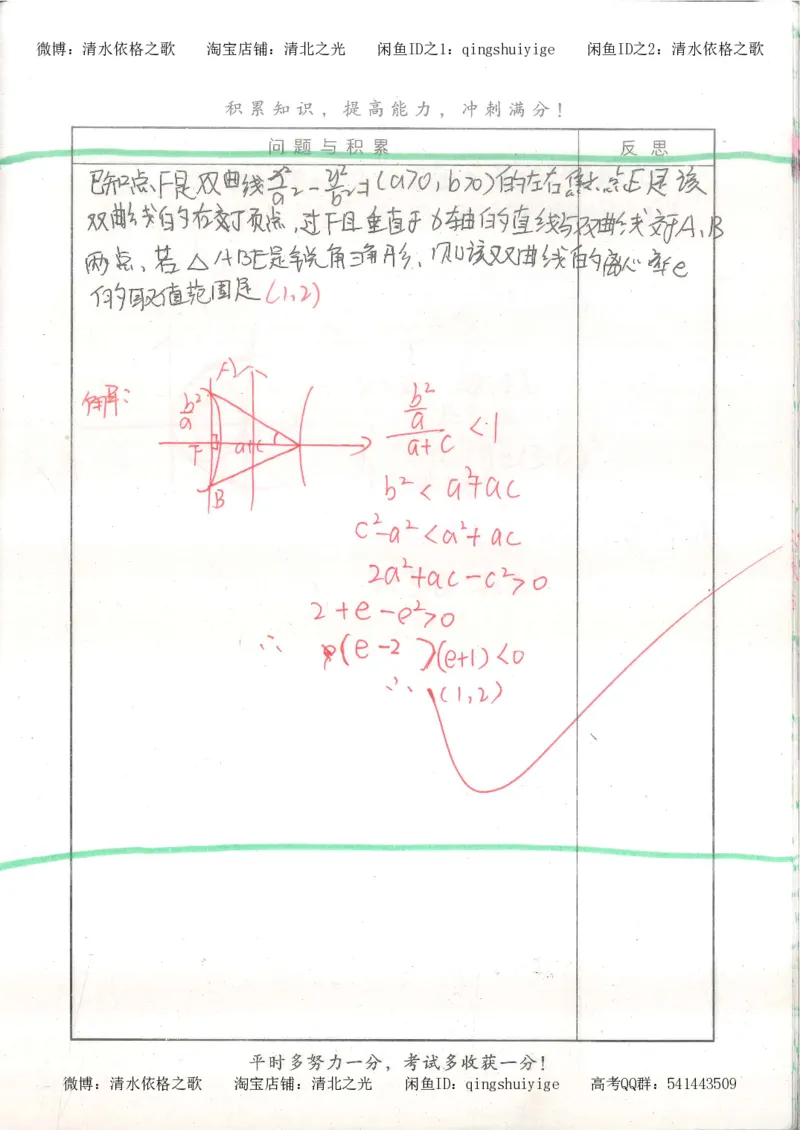 微博：清水依格之歌 淘宝店铺：清北之光 闲鱼ID之1：qingshuiyige 闲鱼ID之2：清水依格之歌
积累知识，提高能力，冲刺满分！
问题与积累 反思
已知点F是双曲线x²/a²-y²/b²=1(a>0,b>0)的左右焦点,点E是该
双曲线的右支顶点,过F且垂直于x轴的直线与双曲线交于A、B
两点、若△ABE是锐角三角形、则该双曲线的离心率e
的取值范围是(1,2)
解：
A
b²/a
F a+c
B
(b²/a)/(a+c) <1
b²< a²+ac
c²-a²<a²+ac
2a²+ac-c²>0
2+e-e²>0
∴ (e-2)(e+1)<0
∴ (1,2)
平时多努力一分，考试多收获一分！
微博：清水依格之歌 淘宝店铺：清北之光 闲鱼ID：qingshuiyige 高考QQ群：541443509